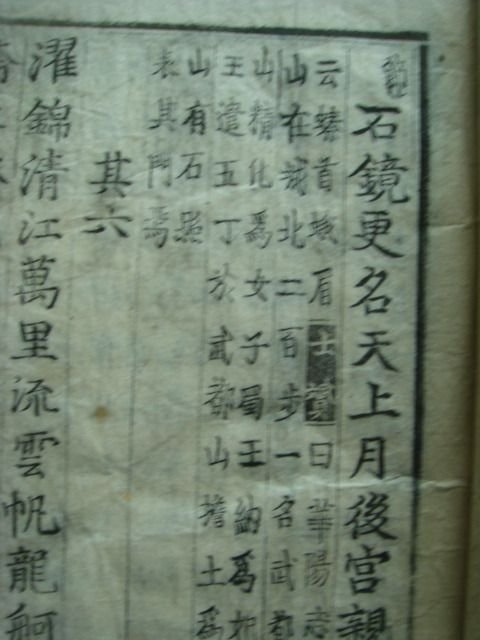 石鏡更名天上月後宮親
云螓首蛾眉士贇曰華陽志
山在城北二百步一名武都
山精化爲女子蜀王納爲妃
王遣五丁於武都山擔土爲
山有石照
表其門焉
其六
濯錦清江萬里流雲帆龍舸